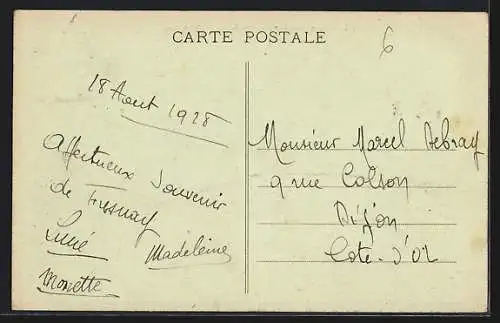 CARTE POSTALE
6
18 Aout 1928
Affectueux Souvenir
de Fresnay
Lucie
Madeleine
Monette
Monsieur Marcel Debray
9 rue Colson
Dijon
Cote-d'or